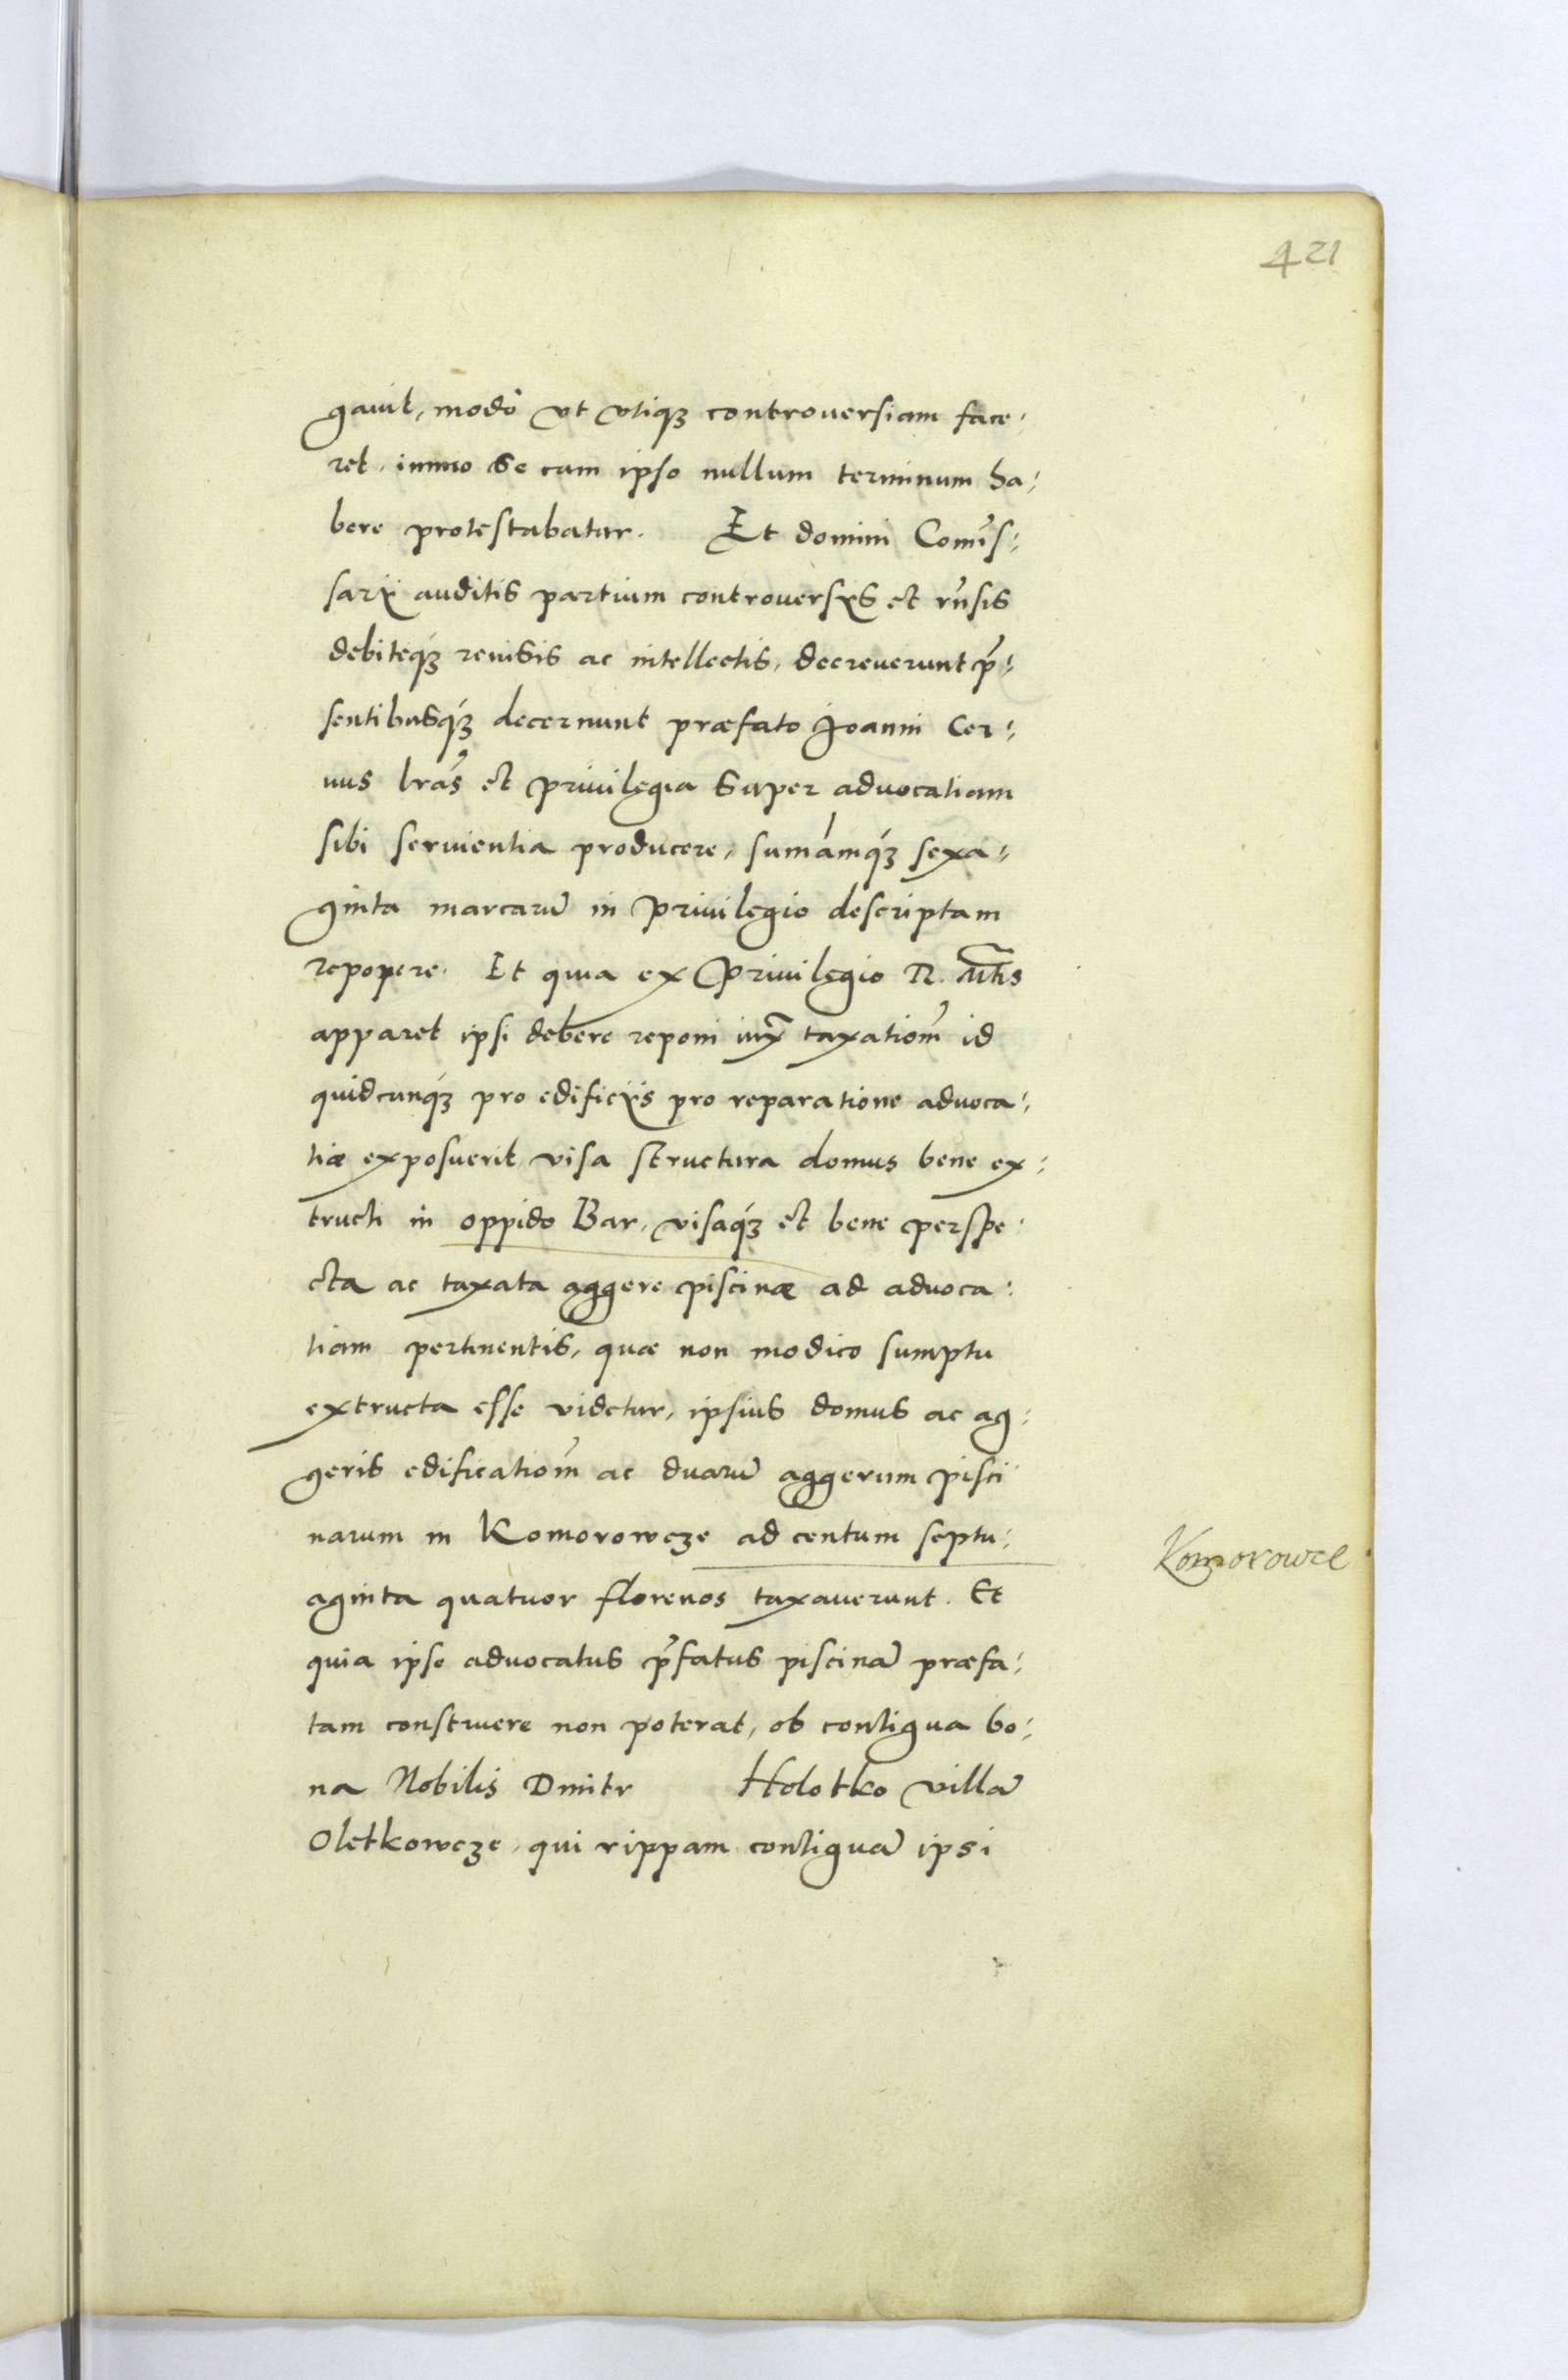 421
gauit, modò vt vtiqꝫ controuersiam face:
ret, immo se cum ipso nullum terminum ha:
bere protestabatur. Et domini Com̃is:
sarij auditis partium controuersijs et rñsis
debiteqꝫ reuisis ac intellectis, decreuerunt p̃:
sentibusqꝫ decernunt præfato Joanni Cer:
uus lr̃as et priuilegia super aduocatiam
sibi seruientia producere, sum̃amqꝫ sexa:
ginta marcarũ in priuilegio descriptam
reponere. Et quia ex Priuilegio R. Mt̃is
apparet ipsi debere reponi iux̃ taxatiom̃ id
quidcunqꝫ pro edificijs pro reparatione aduoca:
tiæ exposuerit visa structura domus bene ex:
tructi in oppido Bar, visaqꝫ et bene perspe:
cta ac taxata aggere piscinæ ad aduoca:
tiam pertinentis, quæ non modico sumptu
extructa esse videtur, ipsius domus ac ag:
geris edificatiom̃ ac duarũ aggerum pisci
narum in Komorowcze ad centum septu:
aginta quatuor florenos taxauerunt. Et
Komorowce
quia ipse aduocatus p̃fatus piscinã præfa:
tam construere non poterat, ob contigua bo:
na Nobilis Dmitr Holotko villã
Oletkowcze, qui rippam contiguã ipsi